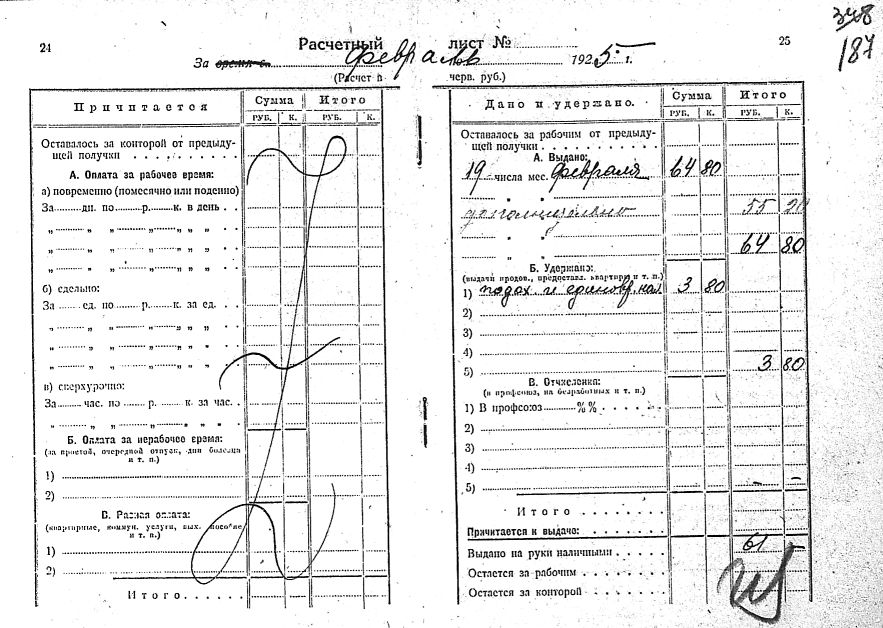 348
187
24
Расчетный лист №
25
За время с Февраль 1925 г.
(Расчет в черв. руб.)
Причитается
Сумма
Итого
РУБ. К. РУБ. К.
Оставалось за конторой от предыду-
щей получки
А. Оплата за рабочее время:
а) повременно (помесячно или поденно)
За ... дн. по ... р. ... к. в день . .
„ „ „ „ „ „
„ „ „ „ „ „
„ „ „ „ „ „
б) сдельно:
За ... ед. по ... р. ... к. за ед. . .
„ „ „ „ „ „
„ „ „ „ „ „
„ „ „ „ „ „
в) сверхурочно:
За ... час. по ... р. ... к. за час. .
„ „ „ „ „ „
Б. Оплата за нерабочее время:
(за простой, очередной отпуск, дни болезни
и т. п.)
1)
2)
В. Разная оплата:
(квартирные, коммун. услуги, вых. пособие
и т. п.)
1)
2)
Итого
Дано и удержано.
Сумма
Итого
РУБ. К. РУБ. К.
Оставалось за рабочим от предыду-
щей получки
А. Выдано:
19 числа мес. февраля 64 80
„ „
дополнительно 55 20
„ „
64 80
„ „
Б. Удержано:
(выдачи продов., предоставл. квартиры и т. п.)
1) подох. и единовр. нал 3 80
2)
3)
4)
5) 3 80
В. Отчисления:
(в профсоюз, на безработных и т. п.)
1) В профсоюз ... %%
2)
3)
4)
5) – –
Итого
Причитается к выдаче:
Выдано на руки наличными 61 –
Остается за рабочим
Остается за конторой